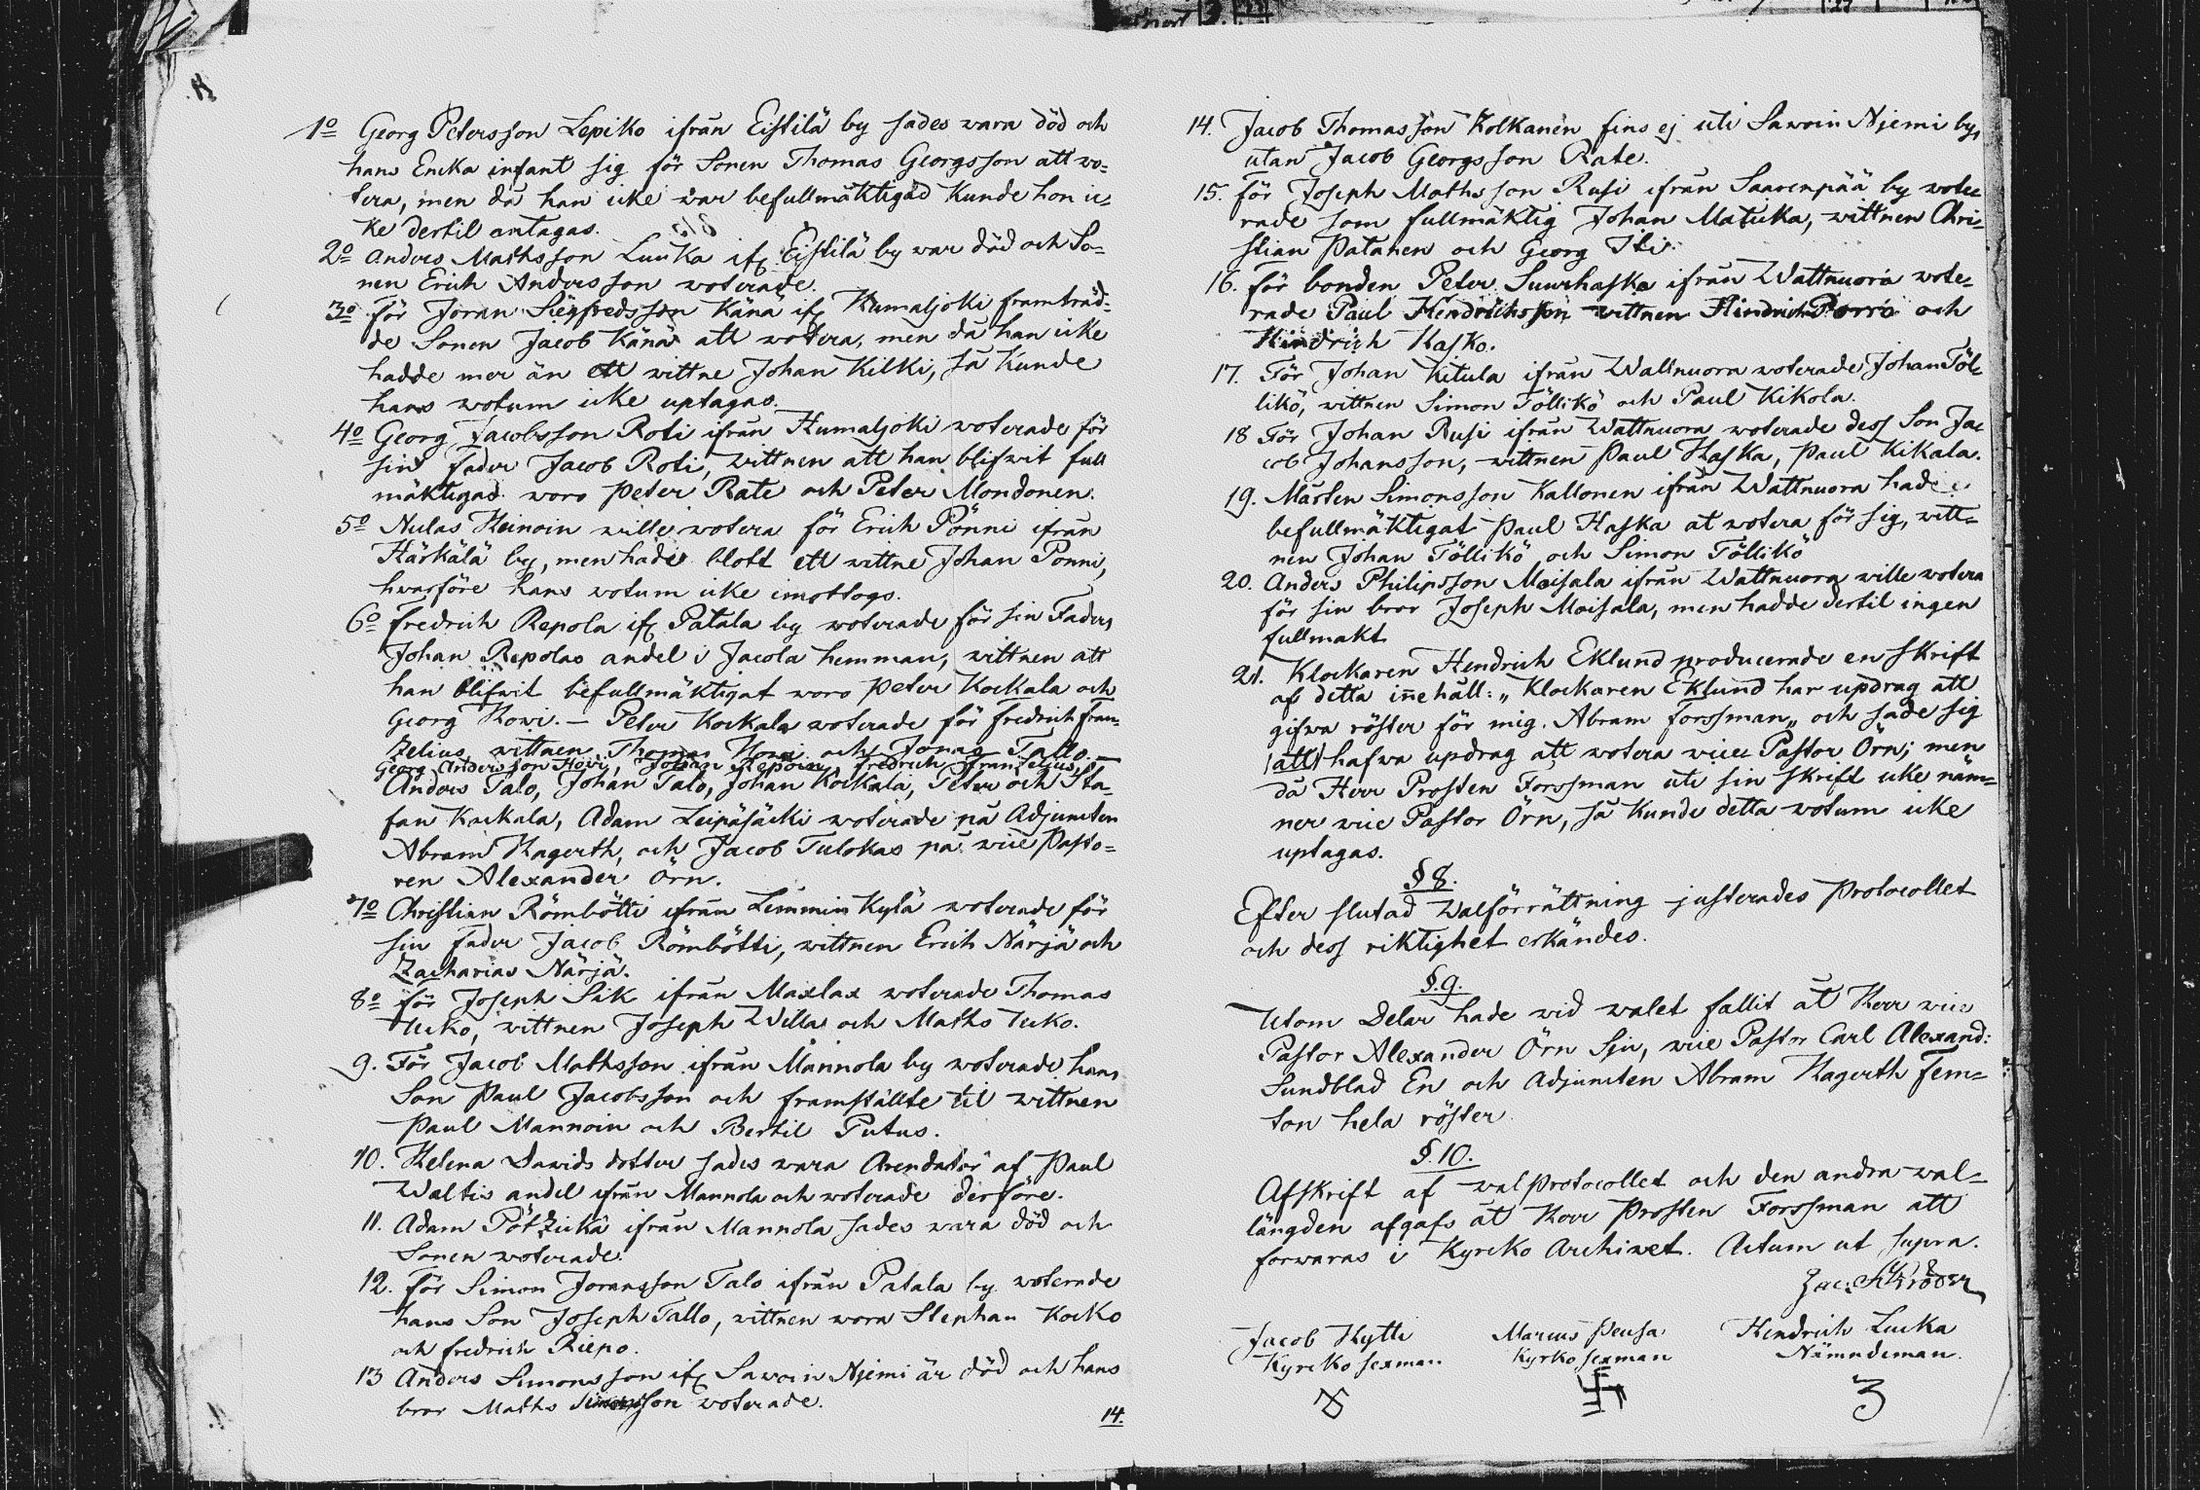 1o Georg Petersson Lepiko ifrån Eistilä by sades wara död och
hans Encka infant sig för Sonen Thomas Georgsson att wo-
tera, men då han icke war befullmäktigad kunde hon ic-
ke dertil antagas.
2o Anders Mathsson Luuka ifr Eistilä by war död och So-
nen Erich Andersson woterade.
3o För Jöran Siegfredsson Känä ifr Humaljoki framträd-
de Sonen Jacob Känä att wotera, men då han icke
hadde mer än ett wittne Johan Kilki, så kunde
hans wotum icke uptagas.
4o Georg Jacobsson Roti ifrån Humaljoki woterade för
sin Fader Jacob Roti, wittnen att han blifwit full
mäktigad woro Peter Rate och Peter Mondonen.
5o Nulas Heinoin wille wotera för Erich Pönni ifrån
Härkälä by, men hade blott ett wittne Johan Ponni,
hwarföre hans wotum icke imottogs.
6o Fredrich Repola ifr Patala by woterade för sin Faders
Johan Repolas andel i Jacola hemman, wittnen att
han blifwit befullmäktigat woro Peter Kockala och
Georg Howi. - Peter Kockala woterade för Fredrich Fran-
zelius, wittnen Thomas Howi och Jonas Tallo.
Georg Andersson Howi, Johan Repoin, Fredrich Franzelius,
Anders Talo, Johan Talo, Johan Kockala, Peter och Sta-
fan Kockala, Adam Leipäsäcki woterade på Adjuncten
Abram Hagerth, och Jacob Tulokas på wice Pasto-
ren Alexander Örn.
7o Christian Römbötti ifrån Lemmin Kylä woterade för
sin Fader Jacob Römbötti, wittnen Erich Närjä och
Zacharias Närjä.
8o för Joseph Sik ifrån Maxlax woterade Thomas
Ucko, wittnen Joseph Willas och Maths Ucko.
9. För Jacob Mathsson ifrån Mannola by woterade hans
Son Paul Jacobsson och framstälte til wittnen
Paul Mannoin och Bertil Putus.
10. Helena Dawids dotter sades wara Arendator af Paul
Waltis andel ifrån Mannola och woterade derföre.
11. Adam Pötzickä ifrån Mannola sades wara död och
Sonen woterade.
12. för Simon Joransson Talo ifrån Patala by woterade
hans Son Joseph Tallo, wittnen woro Stephan Kocko
och fredrich Riepo.
13 Anders Simonsson ifr Sawoin Njemi är död och hans
bror Maths Simonsson woterade.
14.
14. Jacob Thomasson Kolkanen fins ej uti Sawoin Njemi by,
utan Jacob Georgsson Rate.
15. för Joseph Mathsson Rusi ifrån Saarenpää by wote-
rade som fullmäktig Johan Maticka, wittnen Chri-
stian Patanen och Georg Iti.
16. för bonden Peter Suurhaska ifrån Wattnuora wote-
rade Paul Hendrichsson wittnen Hindrich Porro och
Hindrich Kasko.
17. För Johan Kitula ifrån Wattnuora woterade Johan Töl-
likö, wittnen Simon Töllikö och Paul Kikola.
18 För Johan Rusi ifrån Wattnuora woterade dess Son Jac
cob Johansson, wittnen Paul Haska, Paul Kikala.
19. Mårten Simonsson Kallonen ifrån Wattnuora hade
befullmäktigat Paul Haska at wotera för sig, witt-
nen Johan Töllikö och Simon Töllikö
20. Anders Philipsson Moisala ifrån Wattnuora wille wotera
för sin bror Joseph Moisala, men hadde dertil ingen
fullmakt
21. Klockaren Hendrich Eklund producerade en skrift
af detta inehåll: „ Klockaren Eklund har updrag att
gifwa röster för mig. Abram Forssman„ och sade sig
(att) hafwa updrag att wotera wice Pastor Örn; men
då Herr Prosten Forssman uti sin skrift icke näm-
ner wice Pastor Örn, så kunde detta wotum icke
uptagas.
§ 8.
Efter slutad Walförrättning justerades Protocollet
och dess riktighet erkändes.
§. 9.
Utom Delar hade wid walet fallit åt Herr wice
Pastor Alexander Örn Sju, wice Pastor Carl Alexand:
Sundblad En och Adjuncten Abram Hagerth Fem-
ton hela röster
§. 10.
Afskrift af walprotocollet och den andra wal-
längden afgafs åt Herr Prosten Forssman att
forwaras i Kyrcko Archivet. Actum ut supra.
Zac: Schröder
Jacob Hytti Marcus Peusa Hendrich Lucka
Kyrcko sexman Kyrko sexman Nämndeman.